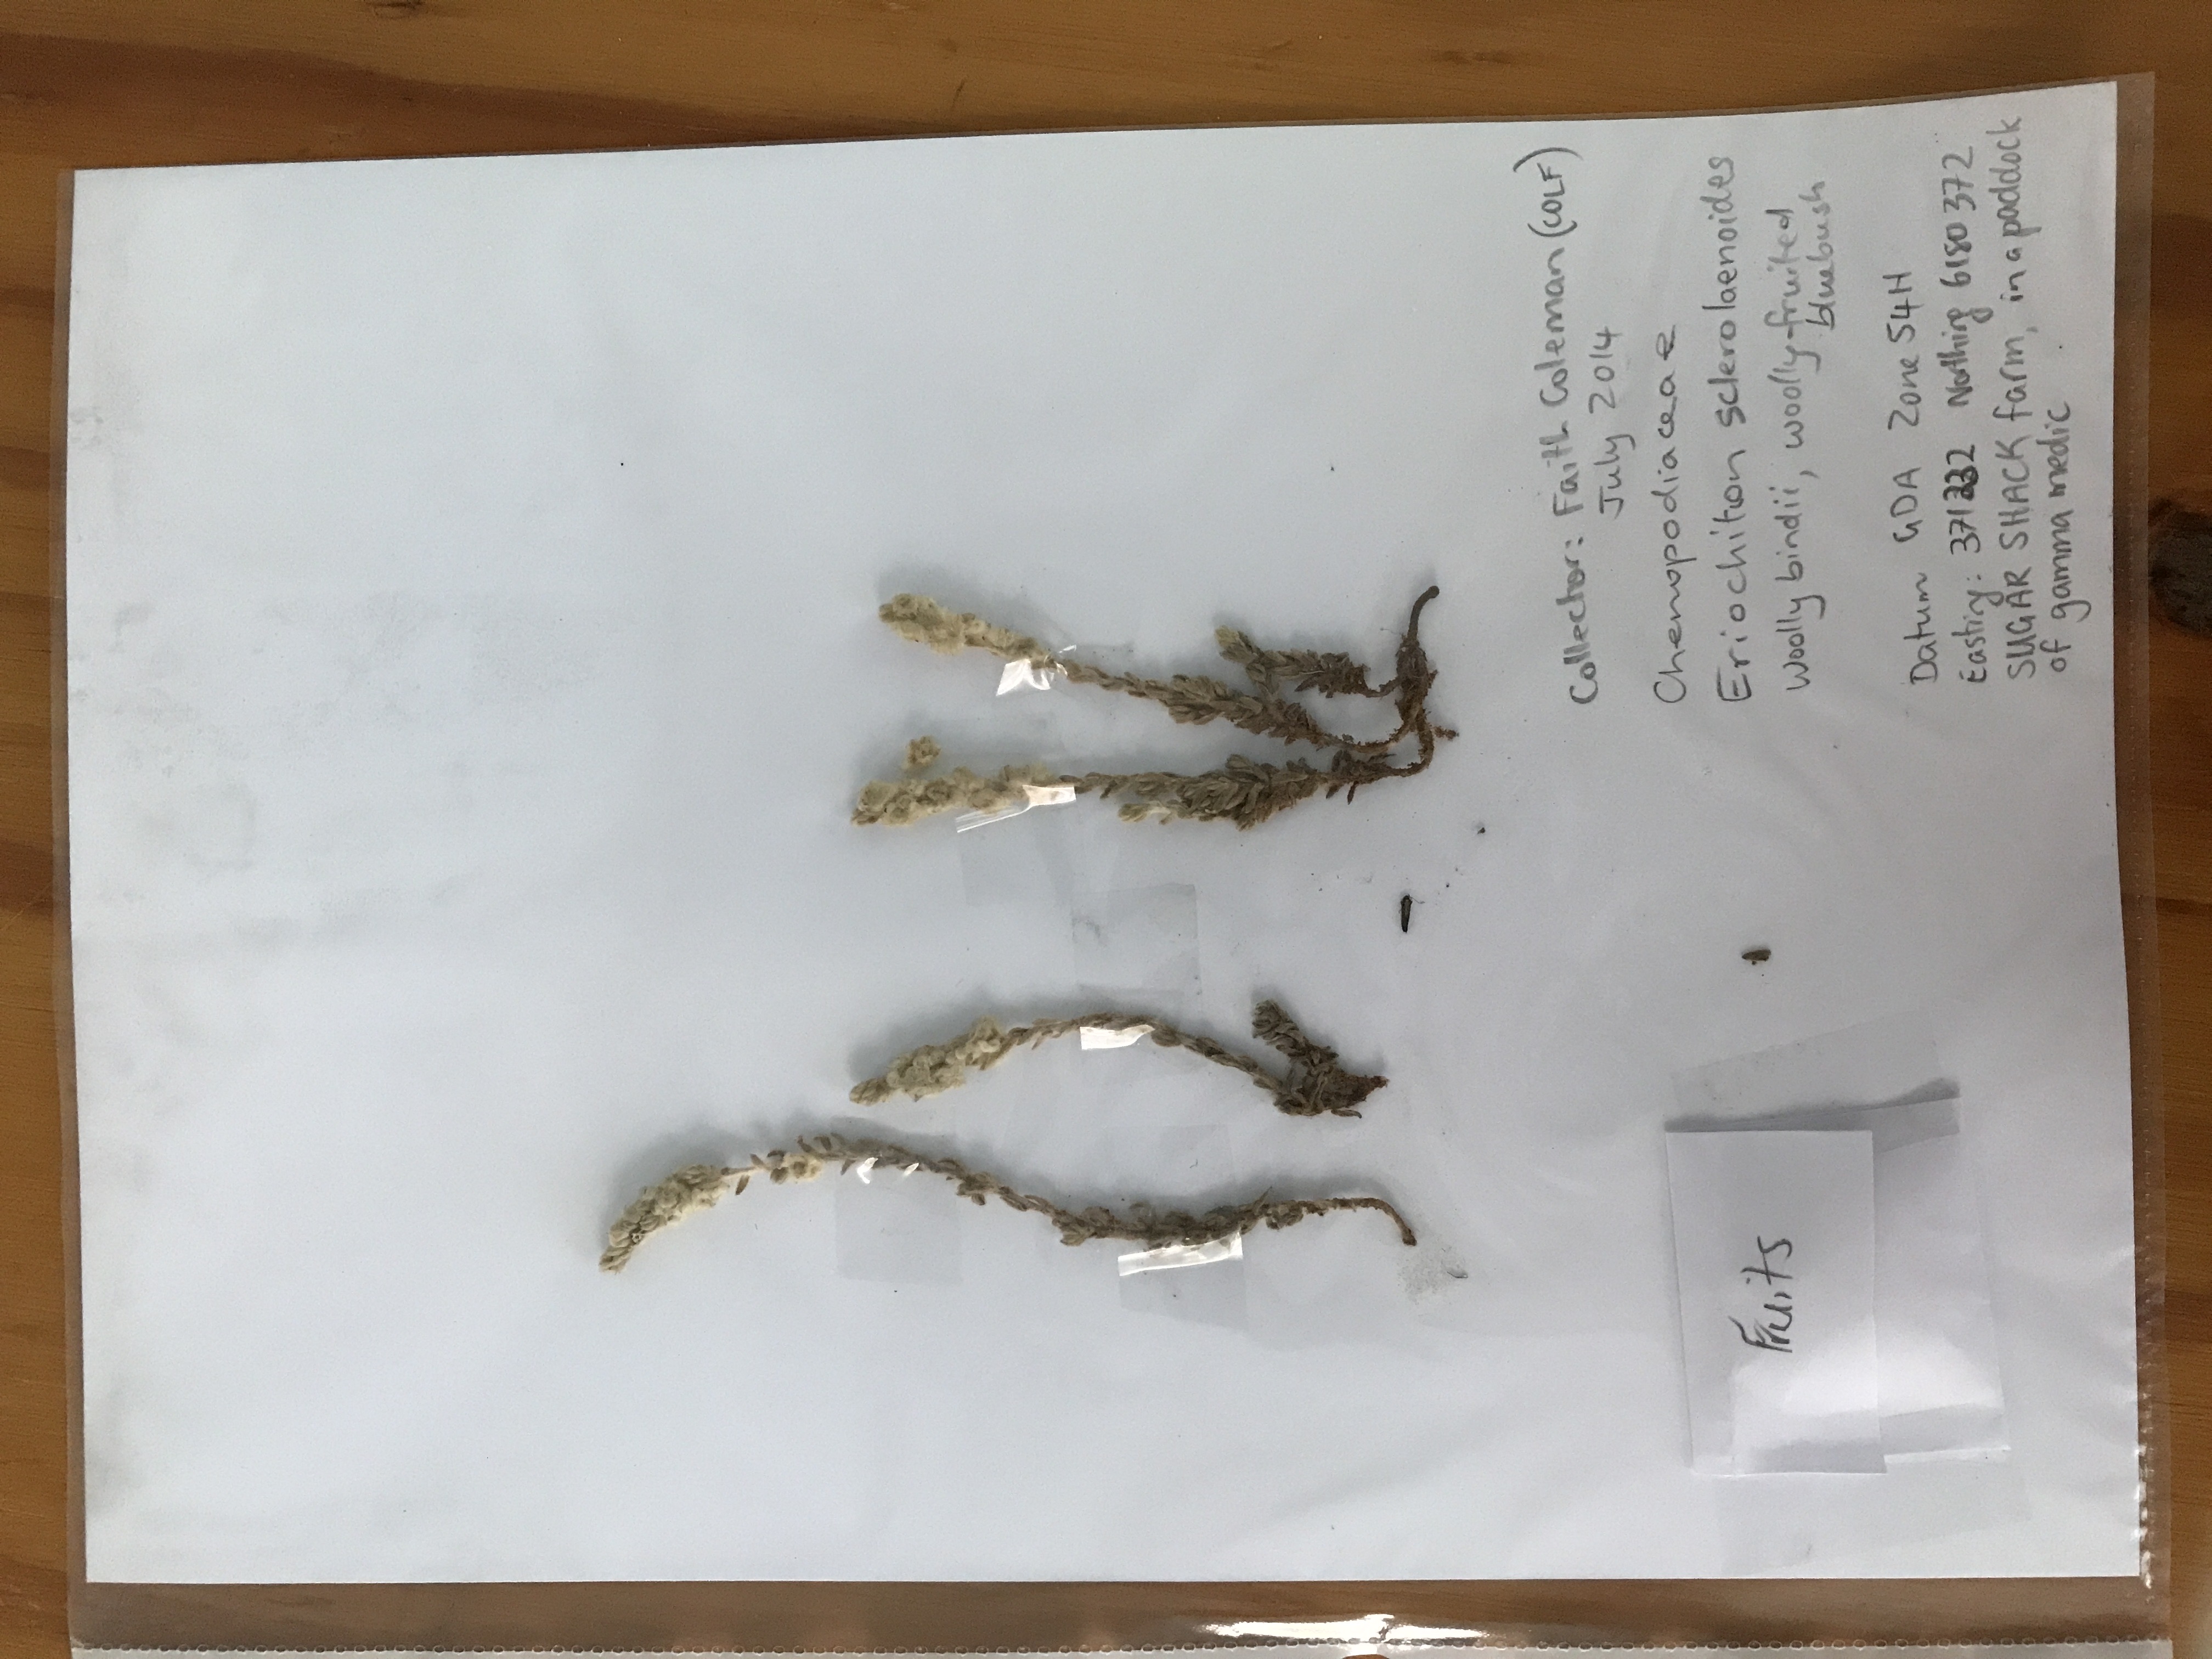 Collector: Faith Coleman (COLF)
July 2014
Chenopodiaceae
Eriochiton sclerolaenoides
Woolly bindii, woolly-fruited
bluebush
Fruits
Datum GDA Zone 54H
Easting: Northing 6180372
SUGAR SHACK farm, in a paddock
of gamma medic